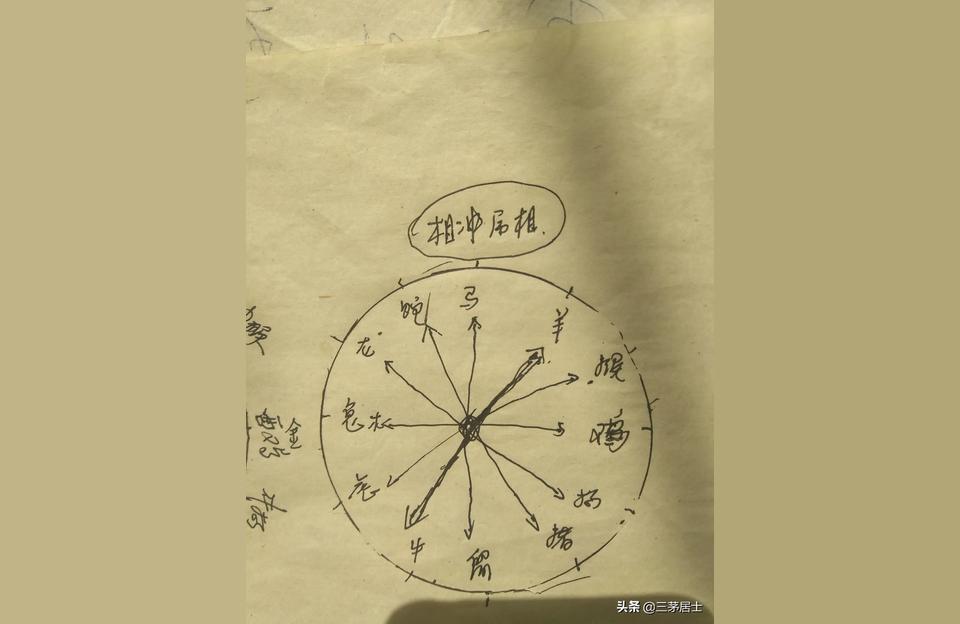 相冲属相.
马
蛇
羊
龙
猴
兔
鸡
虎
狗
牛
猪
鼠
金
头条 @三茅居士